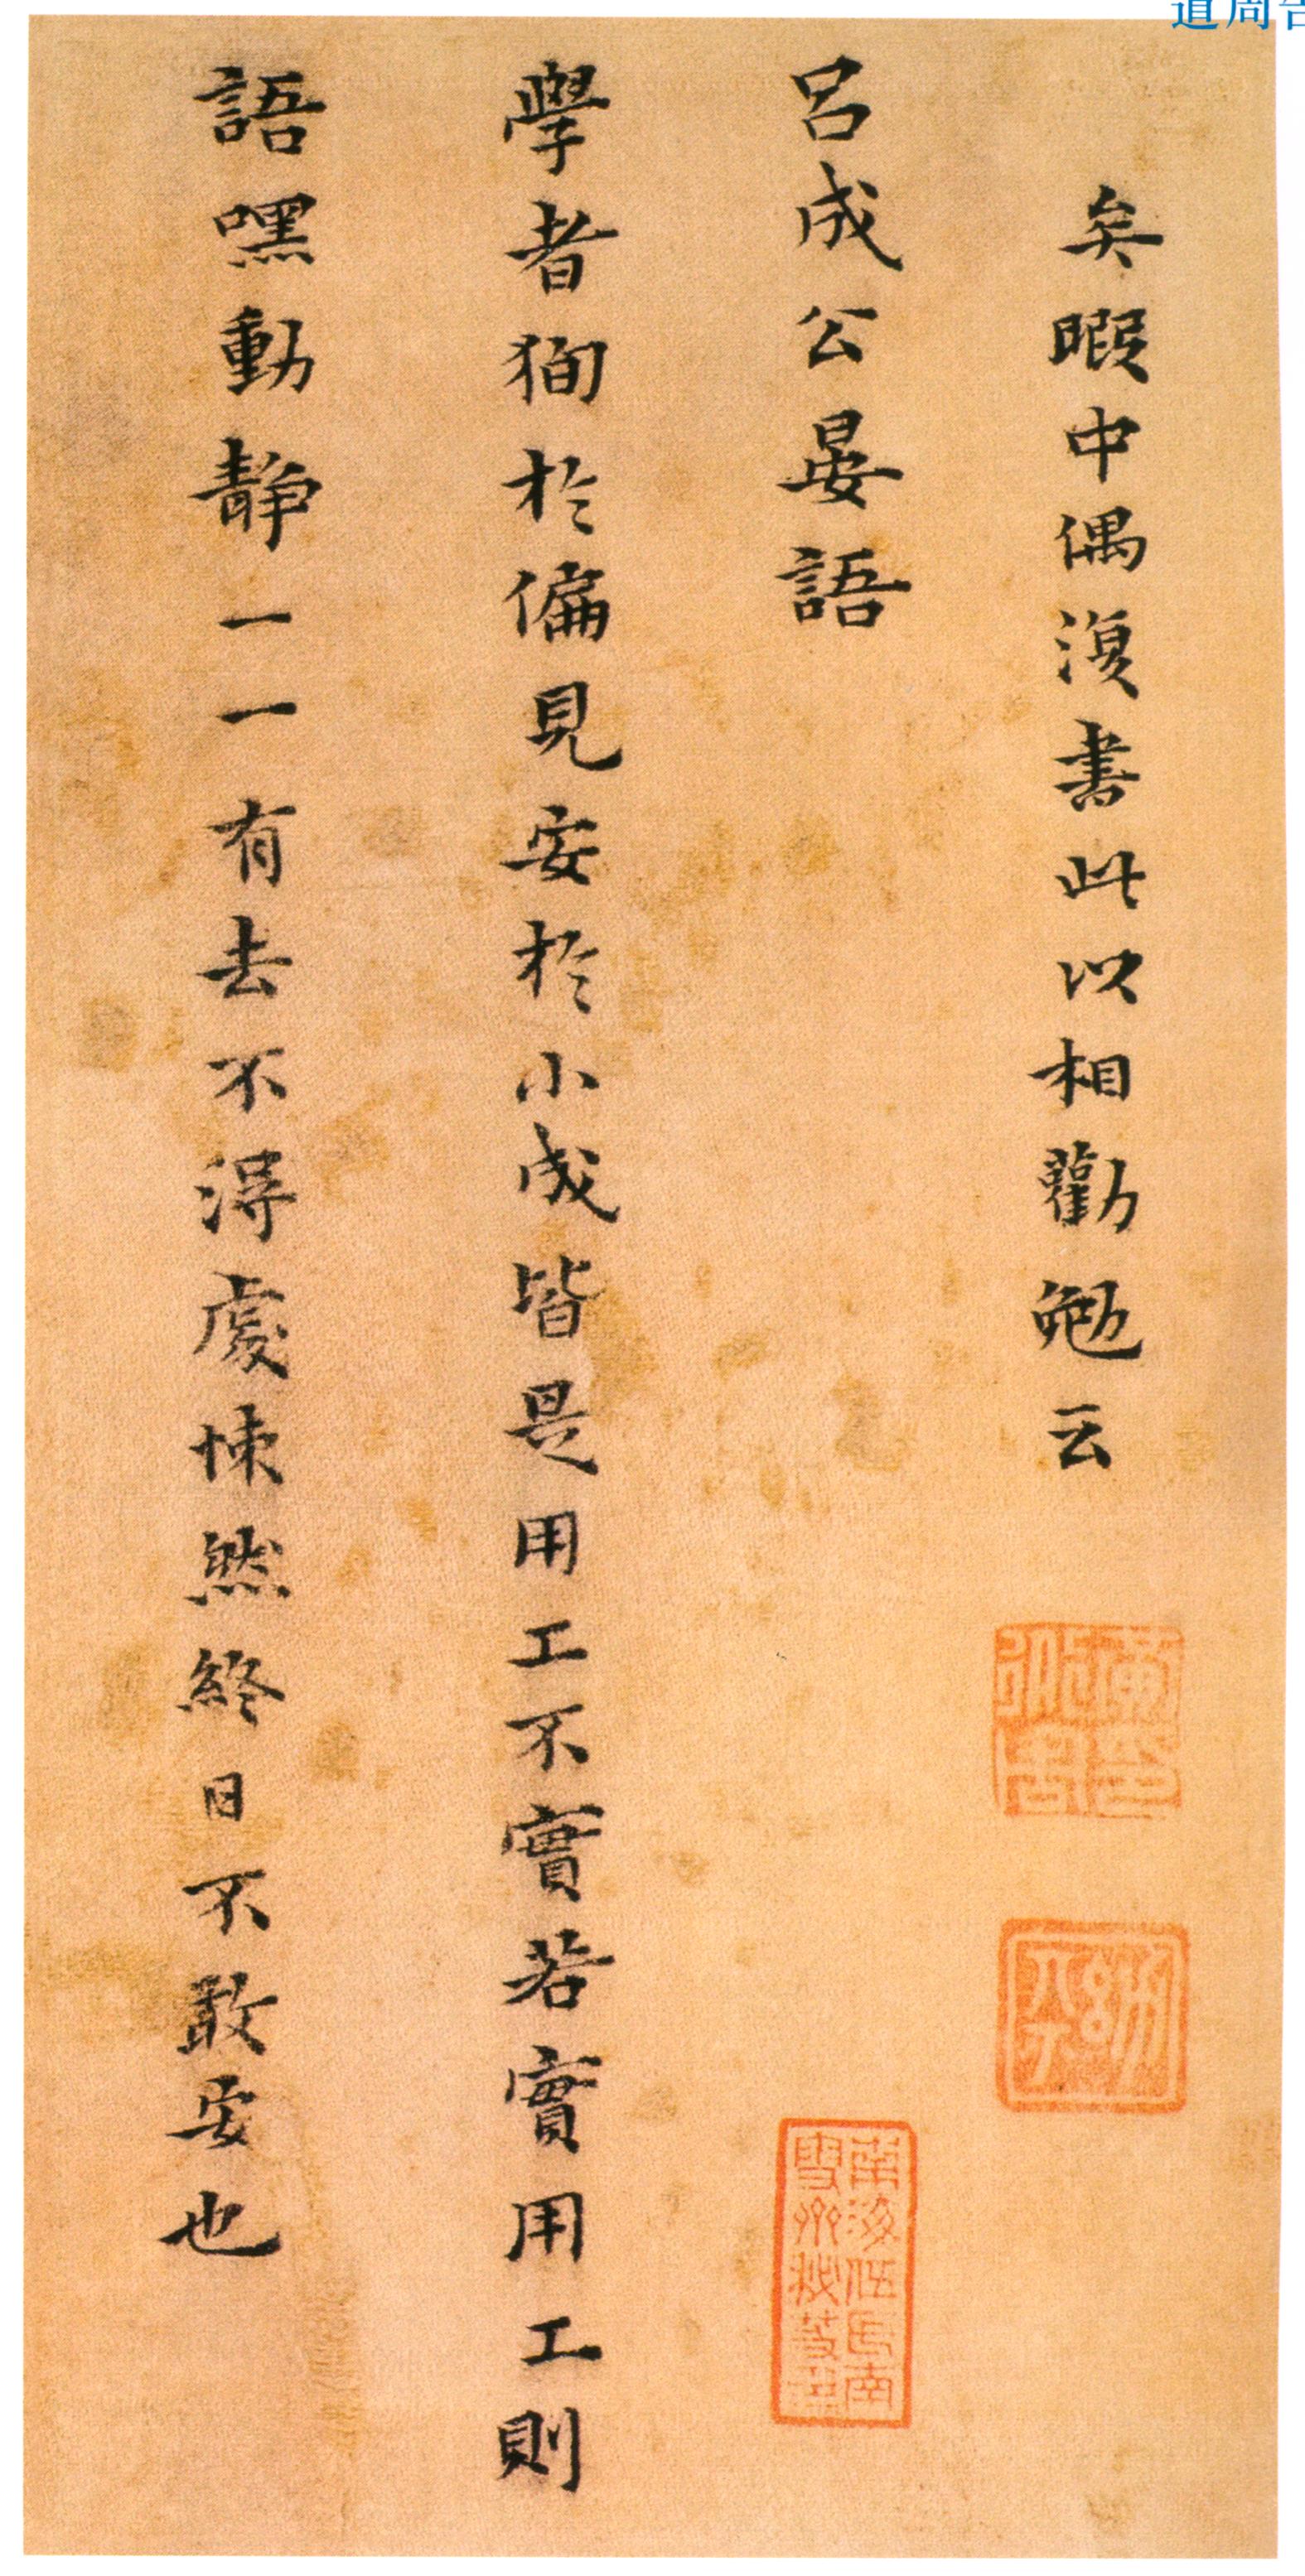 道周告
矣暇中偶復書此以相勸勉云
呂成公晏語
學者狥於偏見安於小成皆是用工不實若實用工則
語嘿動静一一有去不得處悚然終日不敢安也
黃道周印
南海伍氏南雪齋秘笈印